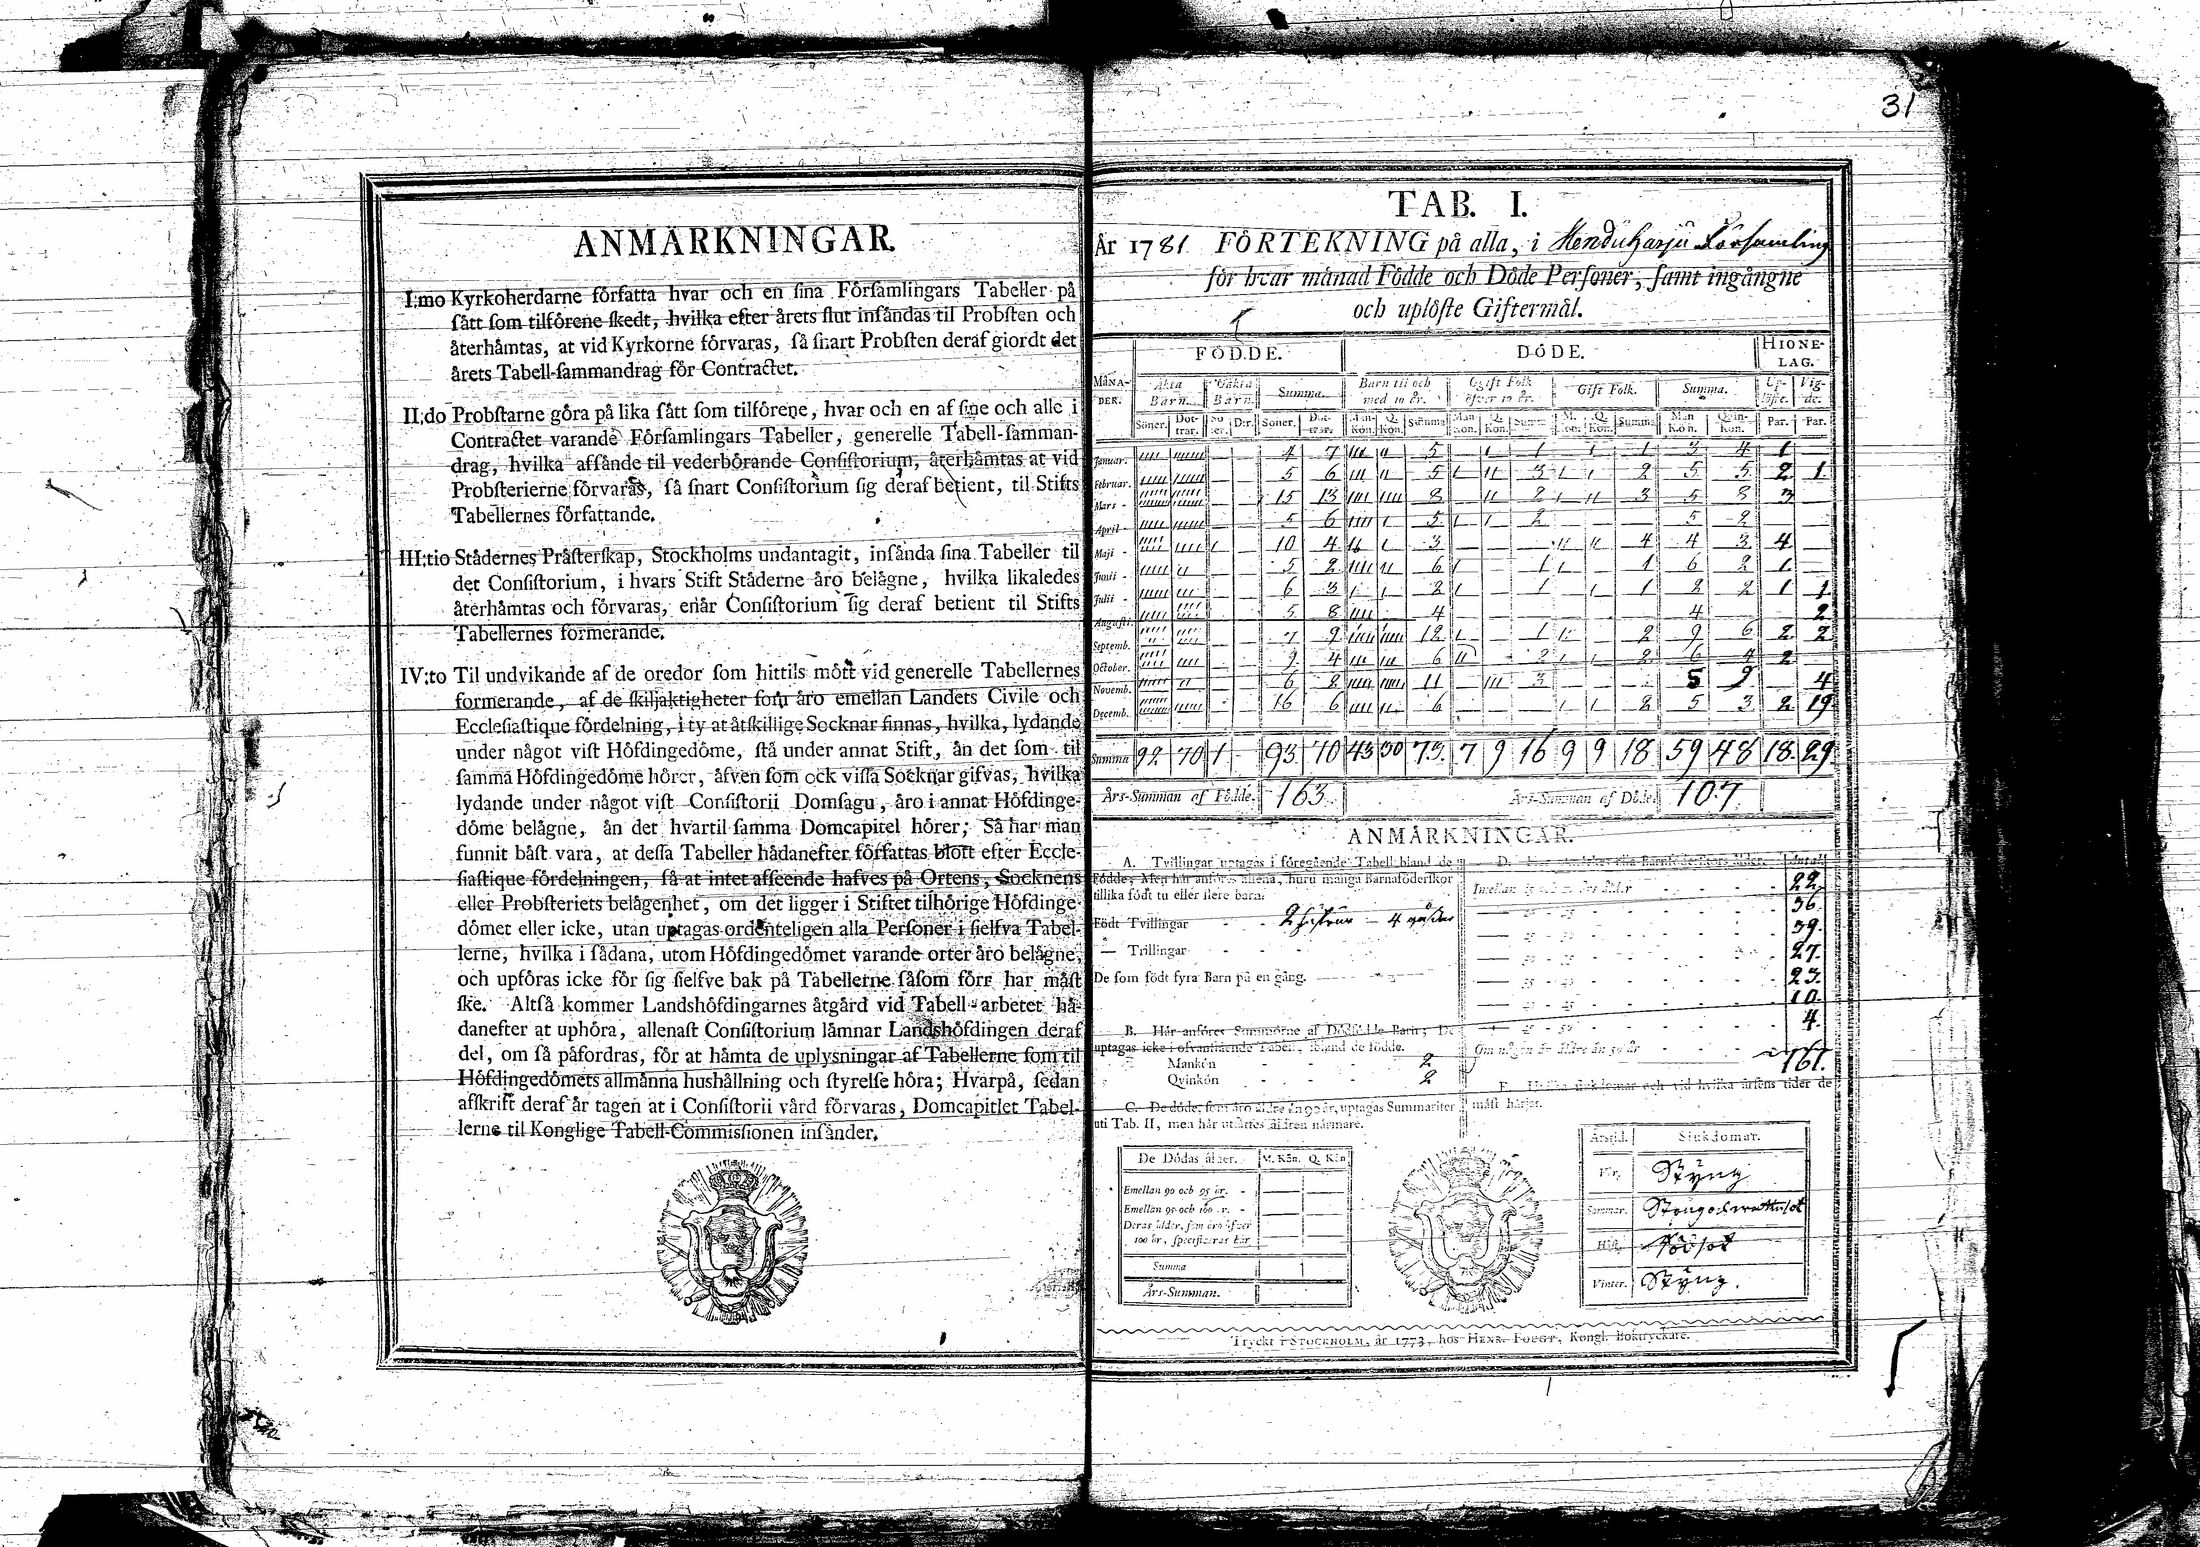 31
ANMÄRKNINGAR.
I:mo Kyrkoherdarne författa hvar och en sina Församlingars Tabeller på
sått som tilförene skedt, hvilka efter årets slut insåndas til Probsten och
återhåmtas, at vid Kyrkorne förvaras, så snart Probsten deraf giordt det
årets Tabell-sammandrag för Contractet.
II:do Probstarne göra på lika sått som tilförene, hvar och en af sine och alle i
Contractet varande Församlingars Tabeller, generelle Tabell-samman-
drag, hvilka afsånde til vederbörande Consistorium, återhåmtas at vid
Probsterierne förvaras, så snart Consistorium sig deraf betient, til Stifts
Tabellernes författande.
III:tio Stådernes Pråsterskap, Stockholms undantagit, insånda sina Tabeller til
det Consistorium, i hvars Stift Ståderne åro belågne, hvilka likaledes
återhåmtas och förvaras, enår Consistorium sig deraf betient til Stifts
Tabellernes formerande.
IV:to Til undvikande af de oredor som hittils mött vid generelle Tabellernes
formerande, af de skiljaktigheter som åro emellan Landets Civile och
Ecclesiastique fördelning, i ty at åtskillige Socknar finnas, hvilka, lydande
under något vist Höfdingedöme, stå under annat Stift, ån det som til
samma Höfdingedöme hörer, åfven som ock vissa Socknar gifvas, hvilka
lydande under något vist Consistorii Domsagu, åro i annat Höfdinge-
döme belågne, ån det hvartil samma Domcapitel hörer; Så har man
funnit båst vara, at dessa Tabeller hådanefter författas blott efter Eccle-
siastique fördelningen, så at intet afseende hafves på Ortens, Socknens
eller Probsteriets belågenhet, om det ligger i Stiftet tilhörige Höfdinge-
dömet eller icke, utan uptagas ordenteligen alla Personer i sielfva Tabel-
lerne, hvilka i sådana, utom Höfdingedömet varande orter åro belågne,
och upföras icke för sig sielfve bak på Tabellerne såsom förr har måst
ske. Altså kommer Landshöfdingarnes åtgård vid Tabell-arbetet hå-
danefter at uphöra, allenast Consistorium låmnar Landshöfdingen deraf
del, om så påfordras, för at håmta de uplysningar af Tabellerne som til
Höfdingedömets allmånna hushållning och styrelse höra; Hvarpå, sedan
afskrift deraf år tagen at i Consistorii vård förvaras, Domcapitlet Tabel-
lerne til Konglige Tabell-Commissionen insånder.
TAB. I.
År 1781 FÖRTEKNING på alla, i Församling
för hvar månad Födde och Döde Personer, samt ingångne
och uplöste Giftermål.
FÖDDE. DÖDE. HIONE-
LAG.
MÅNA-
DER. Äkta Barn. Oäkta Barn. Summa. Barn til och med 10 år. Ogift Folk öfver 10 år. Gift Folk. Summa. Up-löste. Vig-de.
Söner. Döt-trar. Sö-ner. D:r. Söner. Döt-trar. Man-kön. Q. kön. Summa Man kön. Q. Kön. Summ M. kön. Q. Kön. Summa Man Kön. Qvin-Kön. Par. Par.
Januar. 4 7 5 1 1 3 4 1
Februar. 5 6 5 3 2 5 5 2 1
Mars 15 13 8 2 3 5 8 3
April 5 6 5 2 5 2
Maji 10 4 3 4 4 3 4
Junii 5 2 6 1 1 6 2 1
Julii 6 3 2 1 1 2 2 1 1
Augusti. 5 8 4 4 2
Septemb. 7 9 12 1 2 9 6 2 2
October. 9 4 6 2 2 6 4 2
Novemb. 6 2 11 3 5 9 4
Decemb. 16 6 6 2 5 3 2 19
Summa 92 70 1 93 70 43 30 73 7 9 16 9 9 18 59 48 18 29
Års-Summan af Födde. 163 Års-Summan af Döde. 107
ANMÄRKNINGAR.
A. Tvillingar uptagas i föregående Tabell bland de
Födde; Men här anföres allena, huru många Barnaföderskor
tillika födt tu eller flere barn.
Födt Tvillingar 2
— Trillingar
De som födt fyra Barn på en gång.
B. Här anföres Summorne af Dödfödde Barn; De
uptagas icke i ofvanstående Tabell, ibland de födde.
Mankön 2
Qvinkön 2
C. De döde, som äro äldre än 90 år, uptagas Summariter
uti Tab. II, men här utsättes åldren närmare.
De Dödas ålder. M. Kön. Q. Kön
Emellan 90 och 95 år.
Emellan 95 och 100 år.
Deras ålder, som äro öfver
100 år, specificeras här
Summa
Års-Summan.
Antal
22
36
39
27
23
10
4
Om någon är äldre än 50 år
161
måst härjat.
Årstid. Siukdomar.
Vår. Styng
Sommar.
Höst.
Vinter. Styng.
Tryckt i STOCKHOLM, år 1773, hos HENR. FOUGT, Kongl. Boktryckare.